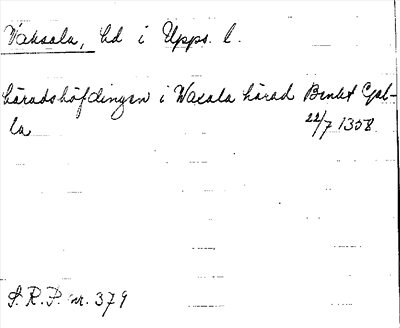 Vaksala, hd i Upps. l.
häradshöfdingen i Waxala härad Benkt Gyl-
la 22/7 1358
S.R.P. nr. 379